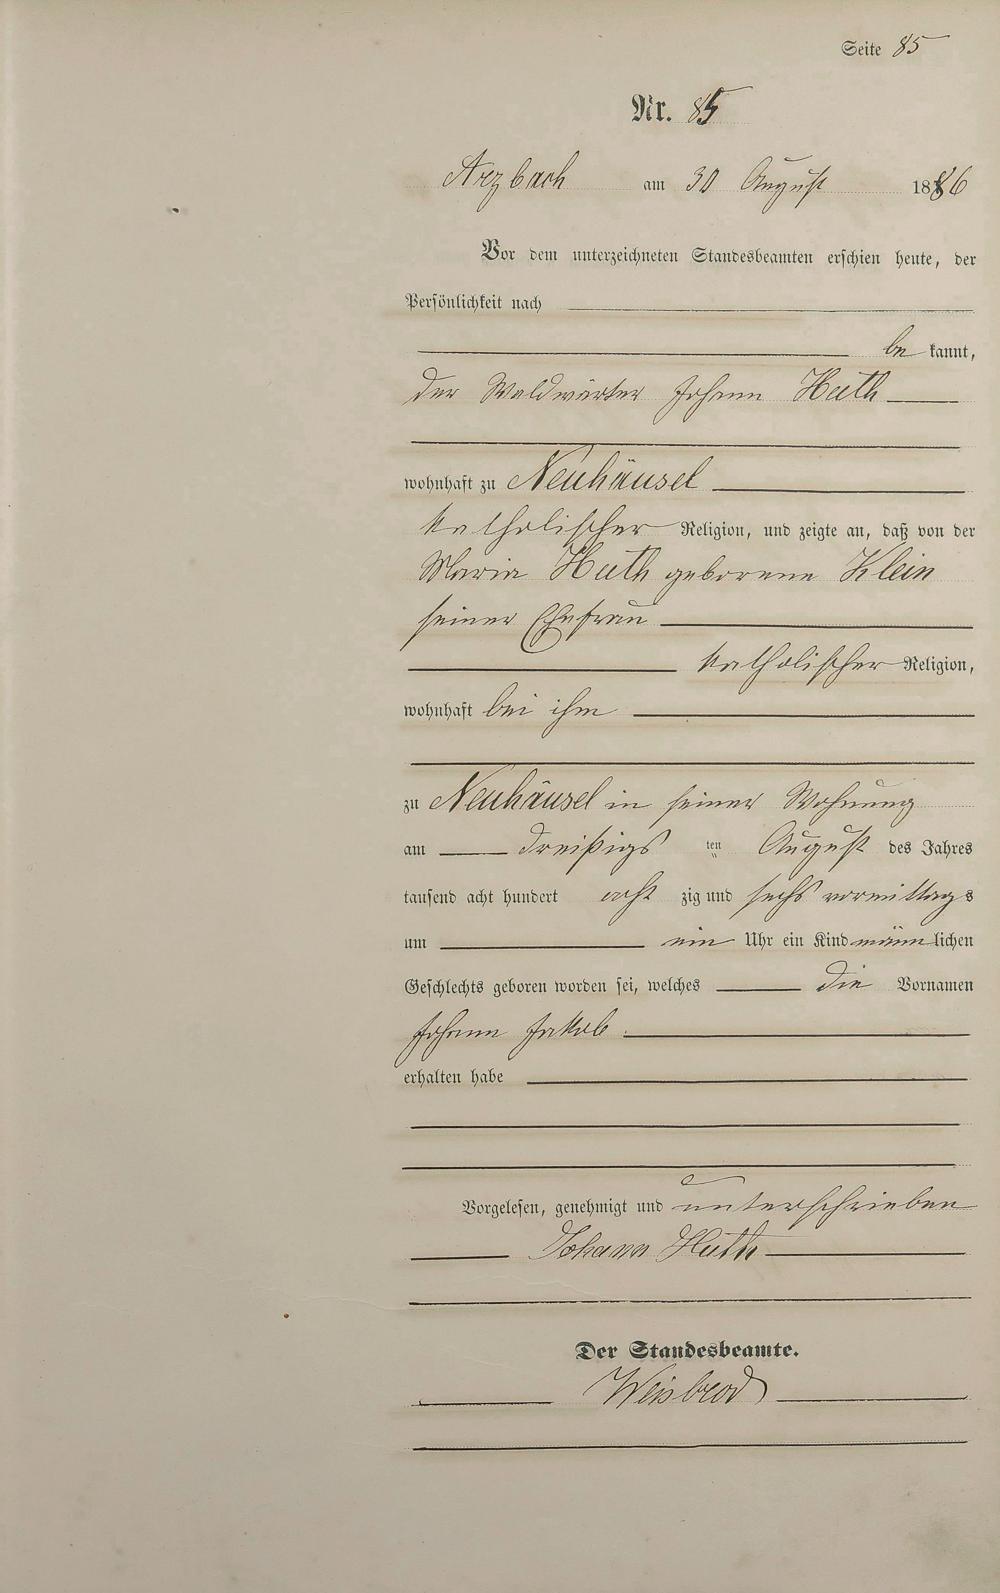 Seite 85
Nr. 85
Arzbach am 30 August 1886
Vor dem unterzeichneten Standesbeamten erschien heute, der
Persönlichkeit nach
be kannt,
der Waldwärter Johann Huth
wohnhaft zu Neuhäusel
katholischer Religion, und zeigte an, daß von der
Maria Huth geborene Klein
seiner Ehefrau
katholischer Religion,
wohnhaft bei ihm
zu Neuhäusel in seiner Wohnung
am dreißigs ten August des Jahres
tausend acht hundert acht zig und sechs vormittags
um ein Uhr ein Kind männlichen
Geschlechts geboren worden sei, welches die Vornamen
Johann Jakob
erhalten habe
Vorgelesen, genehmigt und unterschrieben
Johann Huth
Der Standesbeamte.
Weisbrod